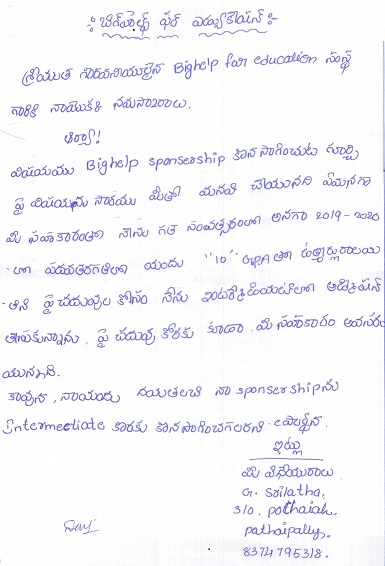 :: బిగ్‌హెల్ప్ ఫర్ ఎడ్యుకేషన్ ::
శ్రీయుత గౌరవనీయులైన Bighelp for education సంస్థ
గారికి నాయొక్క నమస్కారాలు.
ఆర్యా!
విషయము Bighelp sponsership కొనసాగించుట గూర్చి
పై విషయము సారము మీతో మనవి చేయునది ఏమనగా
మీ సహకారంతో నేను గత సంవత్సరంలో అనగా 2019-2020
లో పదవతరగతిలో యందు "10" GPA తో ఉత్తీర్ణురాలయి
తిని పై చదువుల కోసం నేను ఇంటర్మీడియట్‌లో అడ్మిషన్
తీసుకున్నాను. పై చదువు కొరకు కూడా మీ సహకారం అవసరం
యున్నది.
కావున, నాయందు దయతలచి నా sponsership ను
Intermeetiate కొరకు కొనసాగించగలరని ప్రార్థన.
ఇట్లు
మీ విదేయురాలు
G. Srilatha,
S/o. pothaiah,
pathaipally,
8374795318.